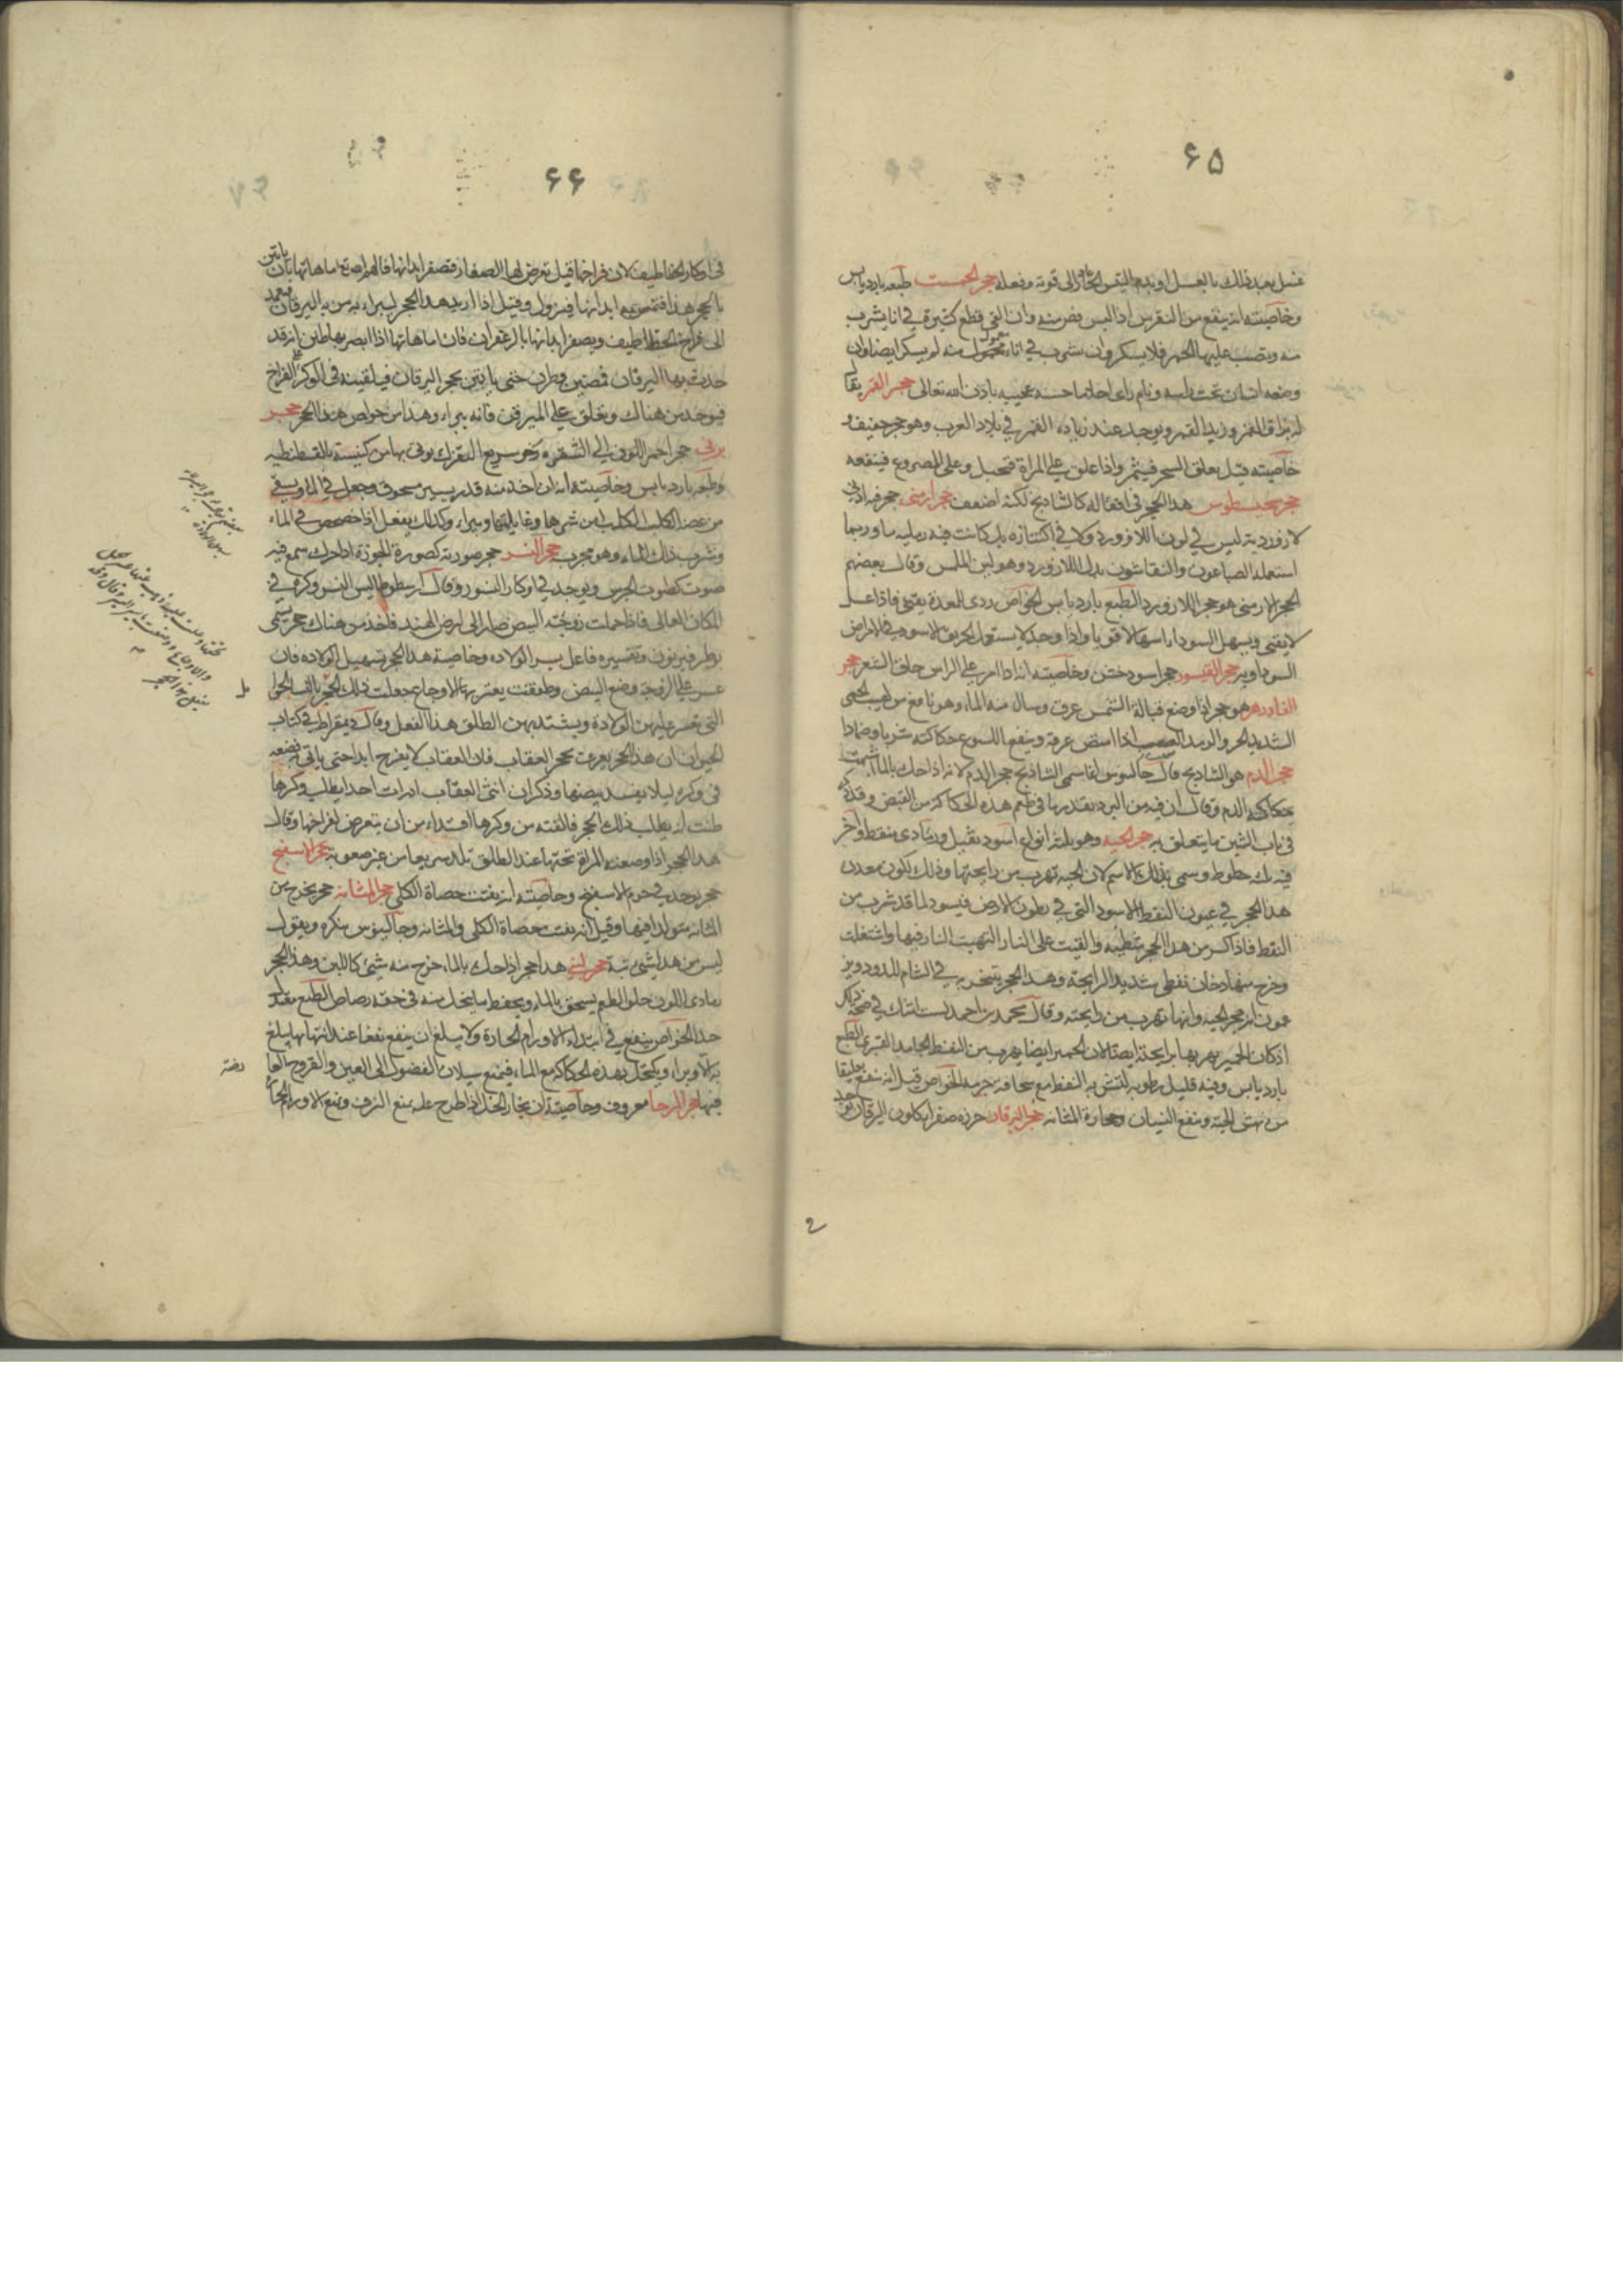 ۶۵
غسل بعد ذلك بالعسل او بدم التيس الحار الى قوته وفعله حجر الجمست طبعه بارد يابس
وخاصيته انه ينفع من النقرس اذا لبس فص منه وان القى قطع كثيرة في انا يشرب
منه ويصب عليها الخمر فلا يسكر وان شرب في اناء معمول منه لم يسكر ايضا وان
وضعه انسان تحت راسه ونام راى احلاما حسنه عجيبه باذن الله تعالى حجر القمر يقال
له بزاق القمر وزبد القمر ويوجد عند زياده القمر في بلاد العرب وهو حجر خفيف و
خاصيته قيل يعلق الشجر فيثمر واذا علق على المراة فتحبل وعلى المصروع فينفعه
هذا الحجر في افعاله كالشاذنج لكنه اضعف حجر ارمنى حجر فيه ادنى
لازورديه ليس في لون اللازورد ولا في اكتنازه بل كانت فيه رمليه ما وربما
استعمله الصباغون والنقاشون بدل اللازورد وهو لين الملمس وقال بعضهم
الحجر الارمنى هو حجر اللازورد الطبع بارد يابس الخواص ردى للمعدة يقئ فاذا غسل
لا يقئ ويسهل السوداء اسهالا قويا واذا وجد لا يستعمل الخربق الاسود في الامراض
السوداويه حجر القيسور حجر اسود خشن وخاصيته انه اذا امر على الراس حلق الشعر حجر
الفادزهر هو حجر اذا وضع قبالة الشمس عرق وسال منه الماء وهو نافع من لهيب الحمى
الشديد الحر والرمد الصعب اذا استف عرقه وينفع اللسوع حكاكته شربا وضمادا
حجر الدم هو الشاذنج قال جالينوس لقد سمى الشاذنج حجر الدم لانه اذا حك بالماء اشبهت
حكاكته الدم وقال ان فيه من البرد بقدر ما في طعم هذه الحكاكة من القبض وقد ذكر
في باب الشين ما يتعلق به حجر الحيه وهو ثلثه انواع اسود ثقيل ورمادى منقط واخر
فيه ثلثه خطوط وسمى بذلك الاسم لان الحيه تهرب من رايحتها وذلك لكون معدن
هذا الحجر في عيون النفط الاسود التى في بطون الارض فيسود لما قد شرب من
النفط فاذا كسر من هذا الحجر شظيه والقيت على النار التهبت النار فيها واشتعلت
وخرج منها دخان نفطى شديد الرايحة وهذا الحجر يتبخر به في الشام للدود ويز
عمون انه حجر الحيه وانها تهرب من رايحته وقال محمد بن احمد لست اشك في صحة ذلك
اذ كان الحمير يهربها برايحته ايضا لان الحمير ايضا يهرب من النفط الجامد القبرى الطبع
بارد يابس وفيه قليل رطوبه لتشربه النفط مع سخافة جرمه الخواص قيل انه ينفع تعليقا
من نهش الحية وينفع النسيان وحجارة المثانه حجر اليرقان خرزه صفرا كلون اليرقان توجد
۶۶
في اوكار الخطاطيف لان فراخها قيل تعرض لها الصفار فتصفر ابدانها فالهم الله تع امهاتها بان ياتين
بالحجر هذا فتمس به ابدانها فيزول وقيل اذا اريد هذا الحجر ليبراء به من به اليرقان فيعمد
الى فراخ الخطاطيف ويصفر ابدانها بالزعفران فان امهاتها اذا ابصرتها ظنن انه قد
حدث بها اليرقان فيمضين ويطرن حتى ياتين بحجر اليرقان فيلقينه في الوكر على الفراخ
فيوخذ من هناك ويعلق على الميرقن فانه يبراء وهذا من خواص هذا الحجر حجر
حجر احمر اللون الى الشقره رخو سريع التفرك يوتى بها من كنيسة بالقسطنطنيه
وطبعه بارد يابس وخاصيته انه ان اخذ منه قدر يسير مسحوق وجعل في الماء وسقى
من عضه الكلب الكلب امن شرها وغايلتها وبراء وكذلك يفعل اذا خضخض في الماء
وشرب ذلك الماء وهو مجرب حجر النسر حجر صورته كصورة الجوزة اذا حرك سمع فيه
صوت كصوت الجرس ويوجد في اوكار النسور وقال ارسطوطاليس النسر وكره في
المكان العالى فاذا حملت زوجته البيض طار الى ارض الهند فاخذ من هناك حجر يسمى
وتفسيره فاعل يسر الولاده وخاصية هذا الحجر تسهيل الولاده فان
عسر على الزوجة وضع البيض وطفقت يعتريها الاوجاع جعلت ذلك الحجر بالنسا الحوامل
التى تعسر عليهن الولادة ويشتد بهن الطلق هذا الفعل وقال ديمقراط في كتاب
الحيوان ان هذا الحجر يعرف بحجر العقاب فان العقاب لا يفرخ ابدا حتى ياتى به فيضعه
في وكره ليلا يفسد بيضها وذكر ان انثى العقاب ان رات احدا يطلب وكرها
ظنت انه يطلب ذلك الحجر فالقته من وكرها افتداء من ان يتعرض لفراخها وقال
هذا الحجر اذا وضعته المراة تحتها عند الطلق تلد سريعا من غير صعوبه حجر الاسفنج
حجر يوجد في جرم الاسفنج وخاصيته انه يفتت حصاة الكلى حجر المثانه حجر يخرج من
المثانه متولدا فيها وقيل انه يفتت حصاة الكلى والمثانه وجالينوس ينكره ويقول
ليس من هذا شئ بتة حجر لبنى هذا حجر اذا حك بالماء خرج منه شئ كاللبن وهذا الحجر
رمادى اللون حلو الطعم يسحق بالماء ويحفظ ما ينحل منه في حقه رصاص الطبع معتدل
جدا الخواص ينفع في ابتداء الاورام الحارة ولا يبلغ ان ينفع نفعا عند انتهائها يبلغ
به الابراء ويكتحل بهذه الحكاكة مع الماء فيمنع سيلان الفضول الى العين والقروح العا
فيها حجر الرحا معروف وخاصيته ان بخار الخل اذا طرح عليه يمنع النزف ويمنع الاورام الحارة